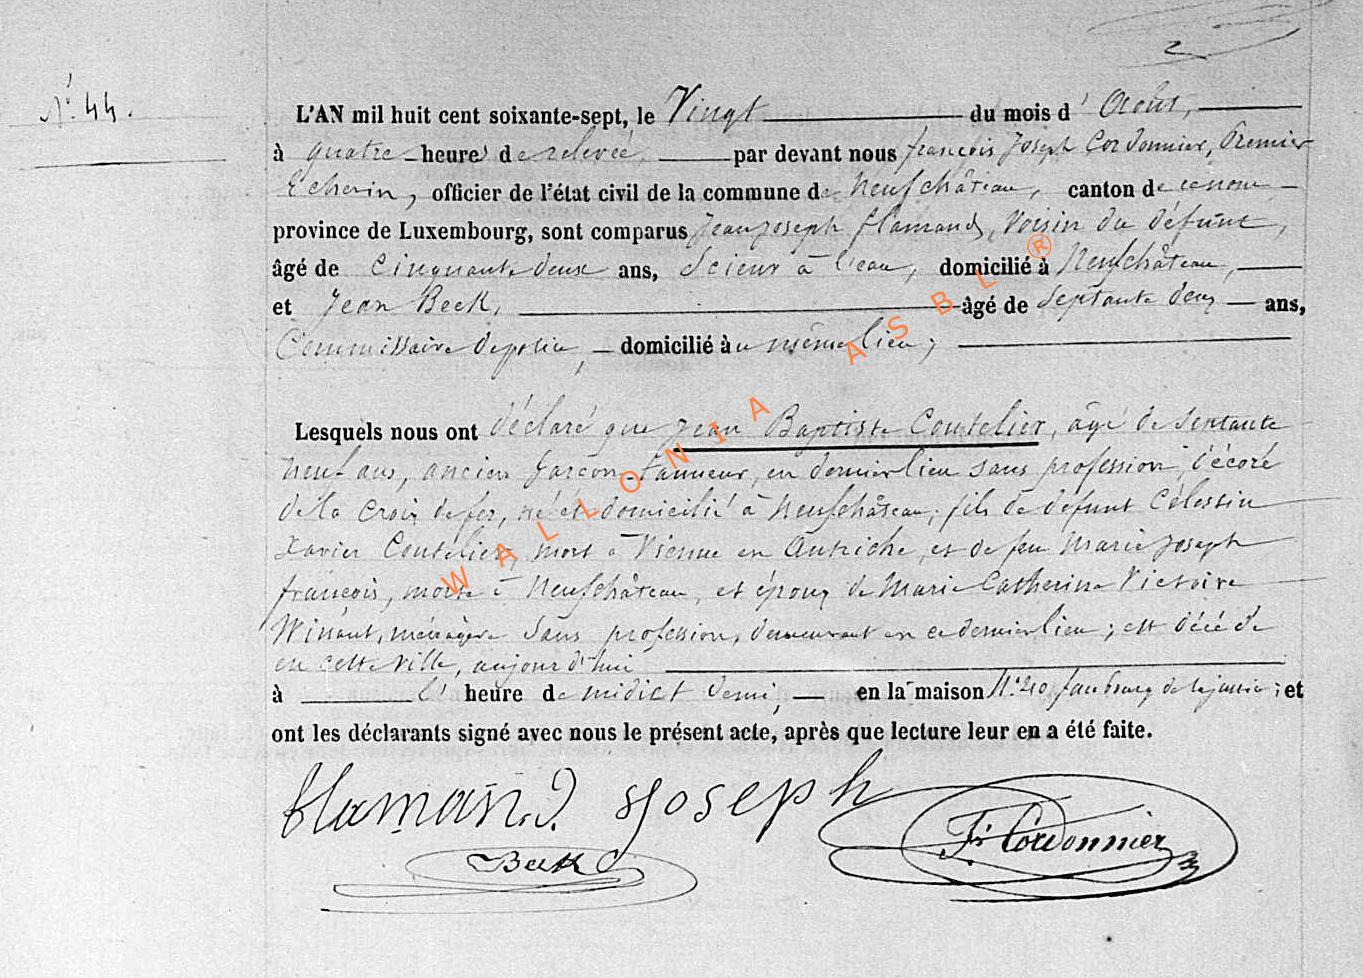 N° 44.
L'AN mil huit cent soixante-sept, le Vingt du mois d'Août,
à quatre heures de relevée, par devant nous françois Joseph Cordonnier, Premier
Echevin, officier de l'état civil de la commune de Neufchâteau, canton de ce nom
province de Luxembourg, sont comparus Jean Joseph flamand, Voisin du défunt,
âgé de Cinquante deux ans, Scieur à l'eau, domicilié à Neufchâteau,
et Jean Beck, âgé de Septante deux ans,
Commissaire de police, domicilié au même lieu;
Lesquels nous ont déclaré que Jean Baptiste Coutelier, âgé de Septante
neuf ans, ancien Garçon-tanneur, en dernier lieu sans profession, décoré
de la Croix de fer, né et domicilié à Neufchâteau; fils de défunt Célestin
Xavier Coutelier, mort à Vienne en Autriche, et de feu Marie Joseph
françois, morte à Neufchâteau, et époux de Marie Catherine Victoire
Winant, ménagère sans profession, demeurant en ce dernier lieu; est décédé
en cette ville, aujourd'hui
à l' heure de midi et demi, en la maison N° 40, faubourg de la justice; et
ont les déclarants signé avec nous le présent acte, après que lecture leur en a été faite.
flamand Joseph
Beck
Fs Cordonnier
WALLONIA ASBL ®